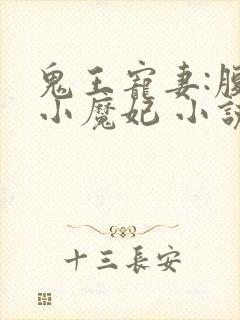 鬼王寵妻:
小魔妃 小
十三長安